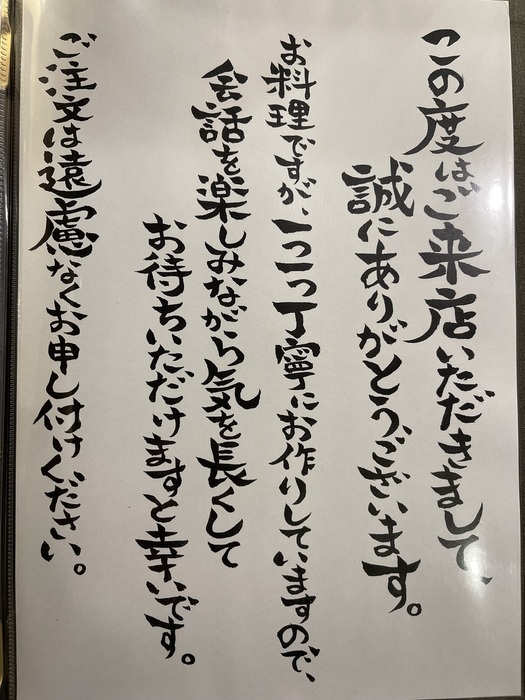 この度はご来店いただきまして、
誠にありがとうございます。
お料理ですが、一つ一つ丁寧にお作りしていますので、
会話を楽しみながら気を長くして
お待ちいただけますと幸いです。
ご注文は遠慮なくお申し付けください。